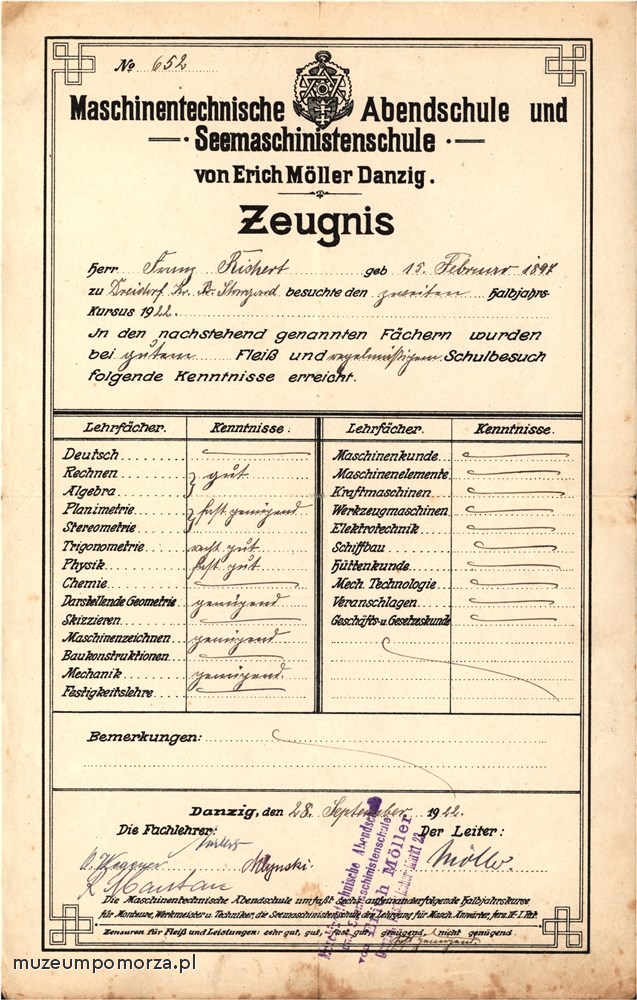 No 652
Maschinentechnische Abendschule und
Seemaschinistenschule
von Erich Möller Danzig.
Zeugnis
Herr Franz Richert geb 15. Februar 1897
zu Dreidorf Kr. Pr. Stargard besuchte den zweiten Halbjahrs-
Kursus 1922.
In den nachstehend genannten Fächern wurden
bei gutem Fleiß und regelmäßigem Schulbesuch
folgende Kenntnisse erreicht.
Lehrfächer. Kenntnisse:
Deutsch
Rechnen
Algebra
gut
Planimetrie
Stereometrie
fast genügend
Trigonometrie recht gut
Physik fast gut
Chemie
Darstellende Geometrie genügend
Skizzieren
Maschinenzeichnen genügend
Baukonstruktionen
Mechanik genügend.
Festigkeitslehre
Lehrfächer. Kenntnisse.
Maschinenkunde
Maschinenelemente
Kraftmaschinen
Werkzeugmaschinen
Elektrotechnik
Schiffbau
Hüttenkunde
Mech. Technologie
Veranschlagen
Geschäfts- u. Gesetzeskunde
Bemerkungen:
Danzig, den 28. September 1922.
Die Fachlehrer: Der Leiter:
Mlynski. Möller.
Mantau
Maschinentechnische Abendschule
und Seemaschinistenschule
von Erich Möller
Die Maschinentechnische Abendschule umfaßt sechs aufeinanderfolgende Halbjahrskurse
für Monteure, Werkmeister u. Techniker, die Seemaschinistenschule den Lehrgang für Masch. Anwärter, fern. IV-I. Pat.
Zensuren für Fleiß und Leistungen: sehr gut, gut, fast gut, genügend, nicht genügend.
fast genügend.
muzeumpomorza.pl